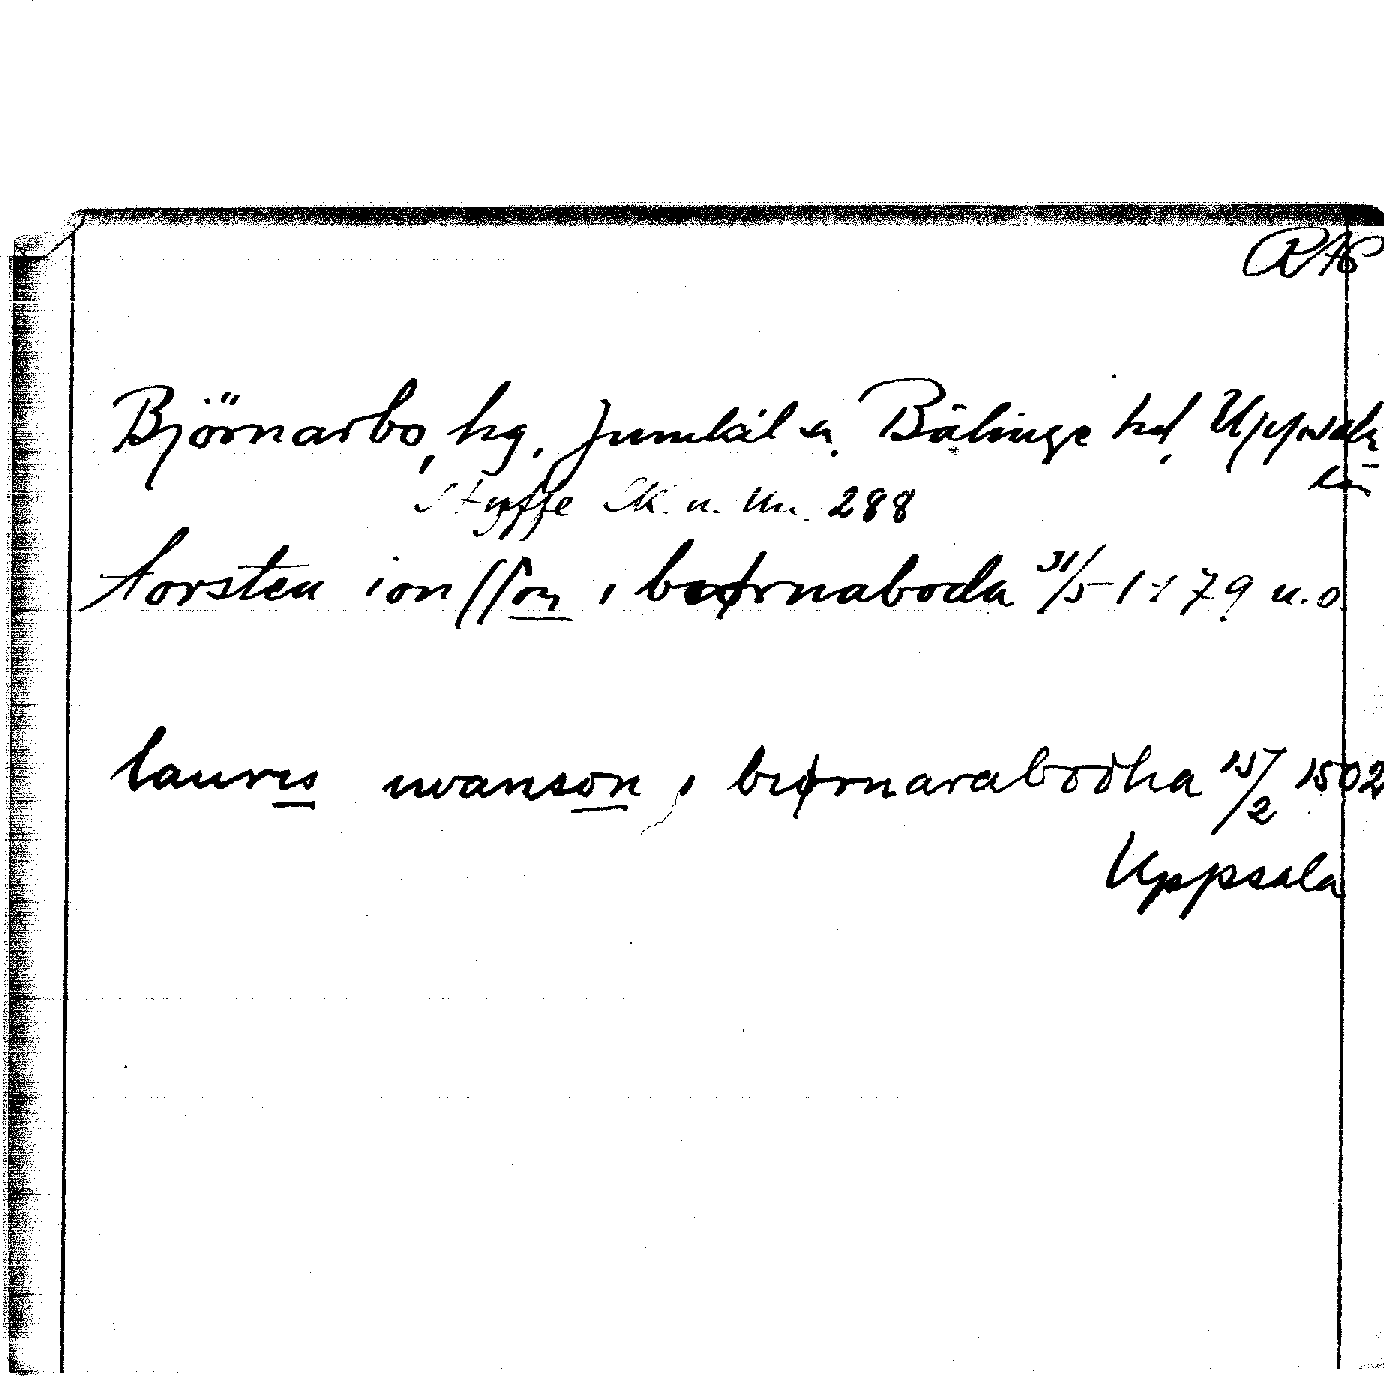 RAP
Björnarbo, hg. Jumkil sn. Bälinge hd, Uppsala
län
Styffe Sk. u. Un. 288
torsten ionsson ı beørnaboda 31/5 1479 u.o.
laurıs nwanson ı bıørnarabodha 15/2 1502
Uppsala